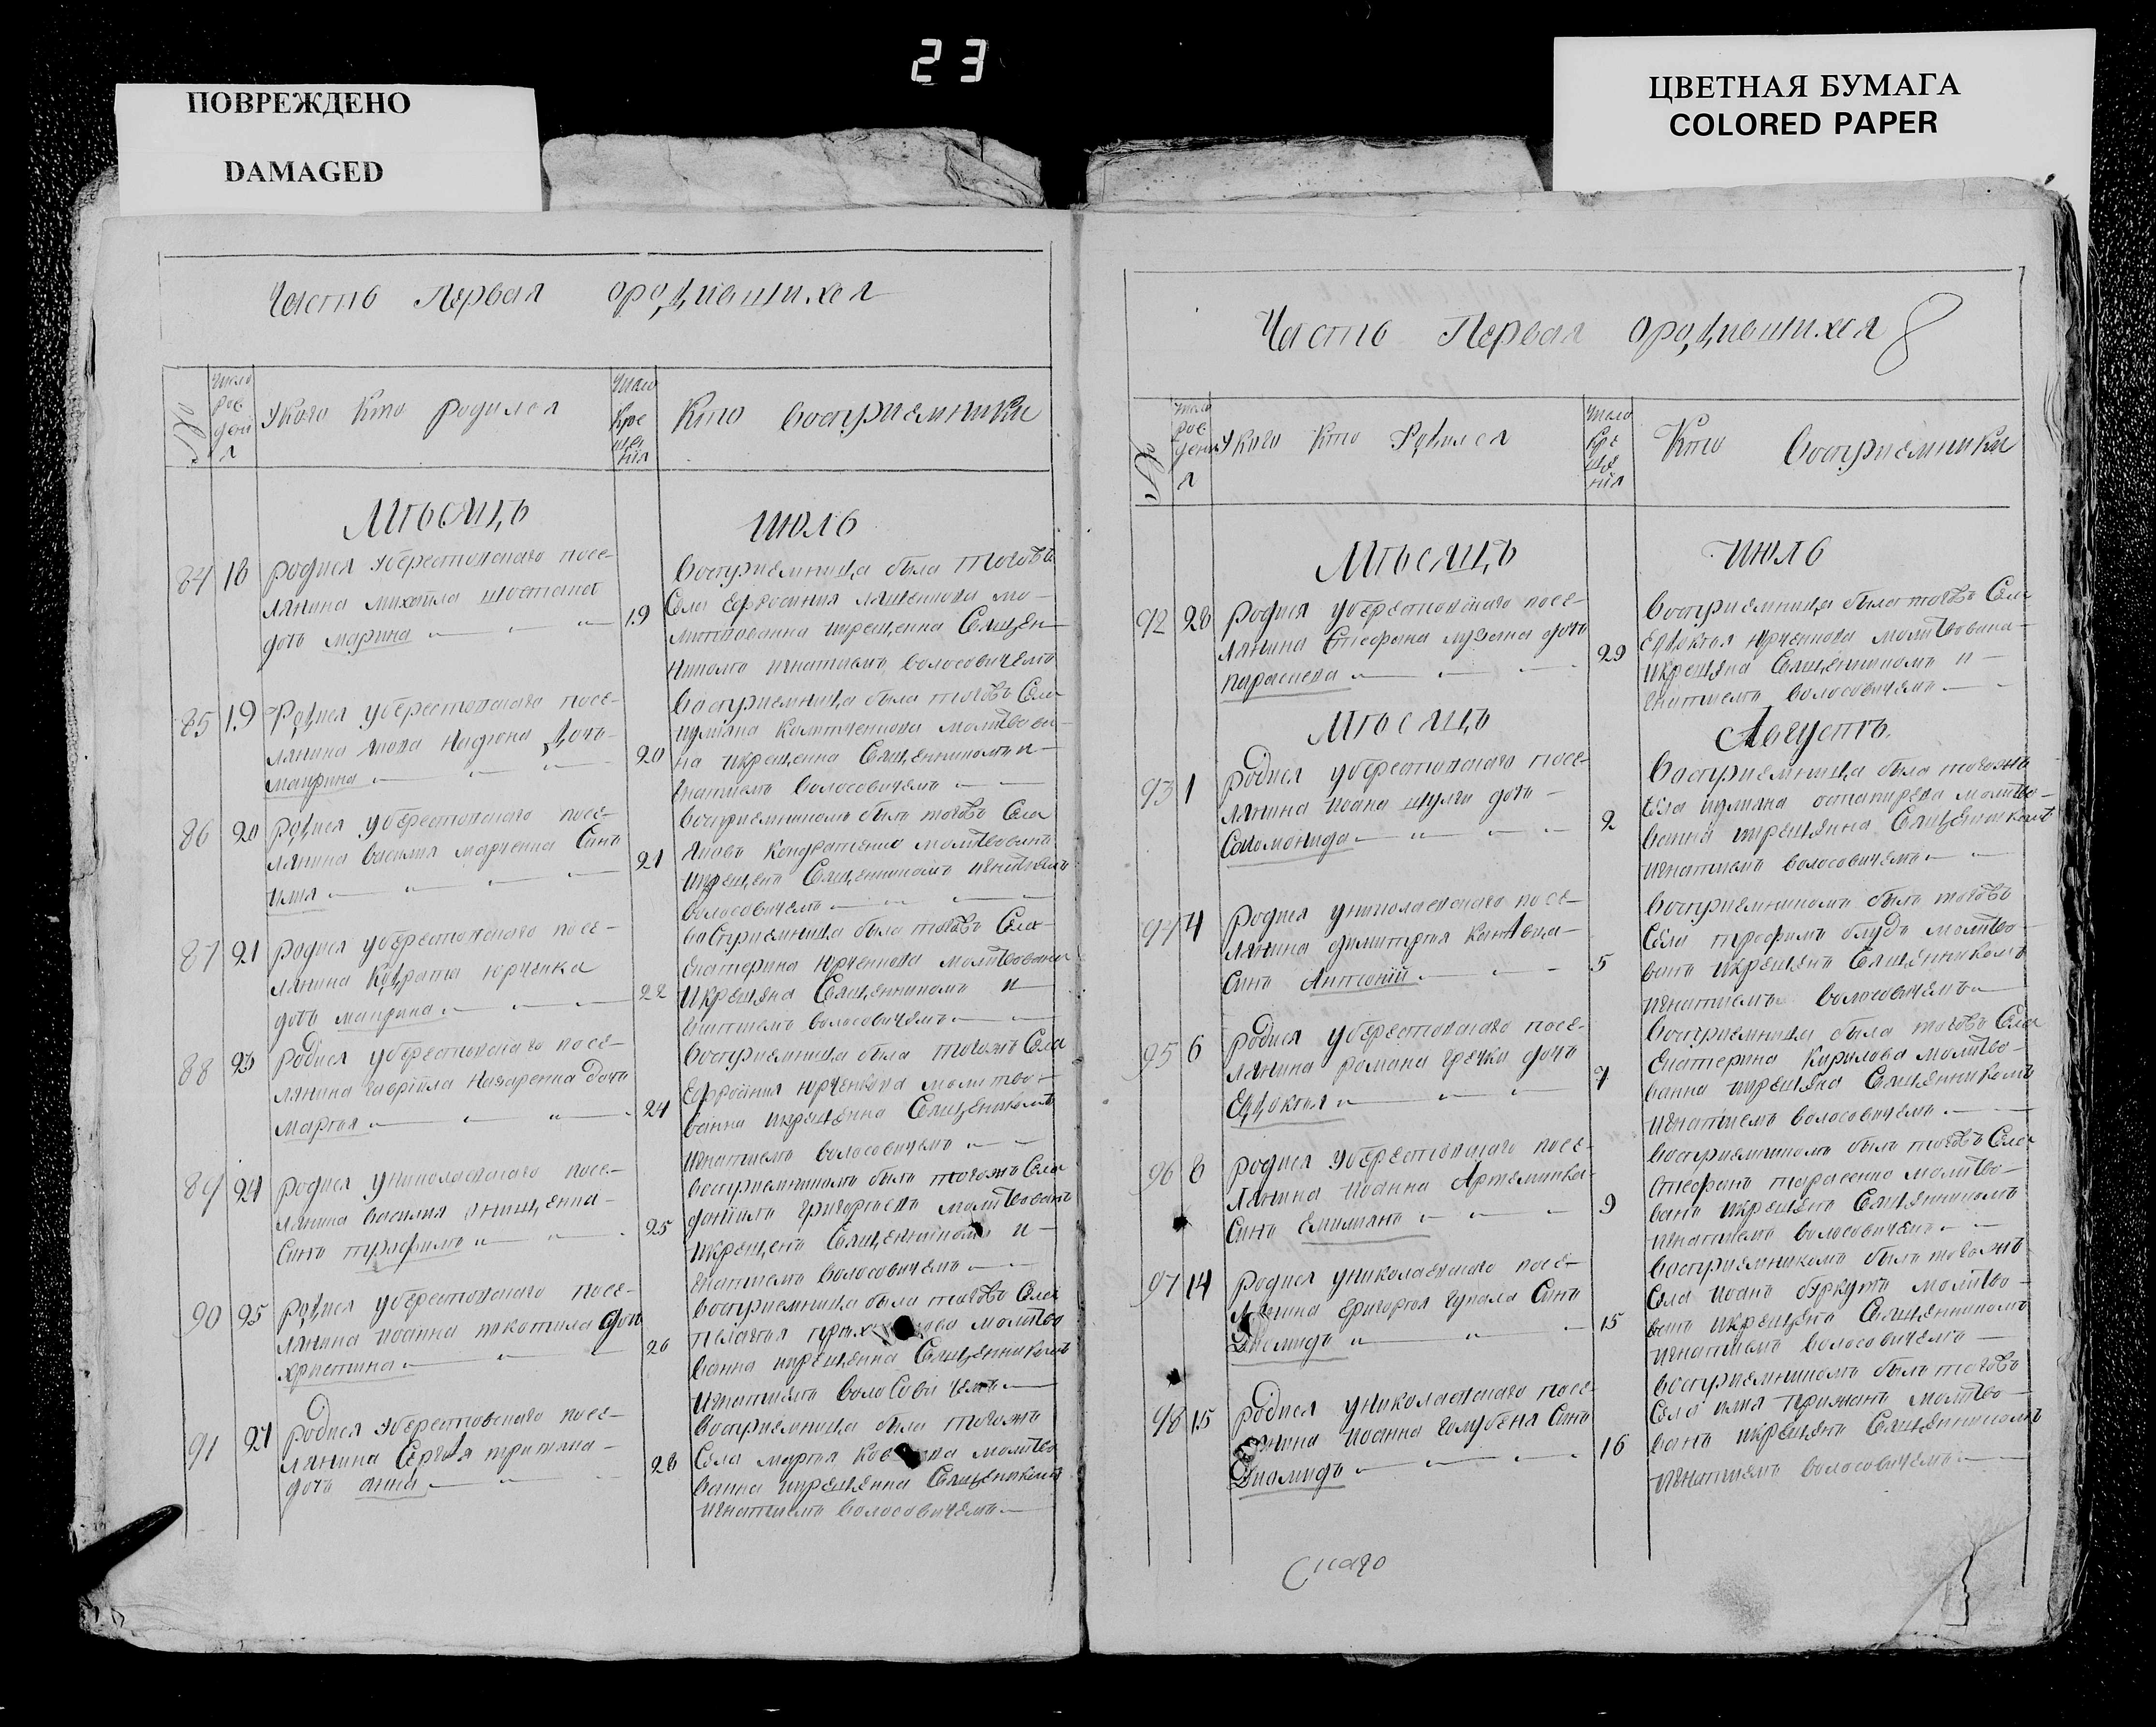 23
ПОВРЕЖДЕНО
DAMAGED
ЦВЕТНАЯ БУМАГА
COLORED PAPER
Часть Первая ородившихся
№
Число рож дени я
Укого Кто родился
Число Кре щен нія
Кто восприемники
Мѣсяцъ июль
84 18
родися Уберестовскаго посе-
лянина михаила шостака
дочь марина
19
восприемница была тогожъ
Села Ефросиния ляшенкова мо-
литвованна икрещенна Священ-
никомъ игнатиемъ волосовичемъ
85 19
Родися уберестовскаго посе-
лянина якова Дочь
маврина
20
восприемница была тогожъ Села
иулияна молитвован-
на икрещенна Священникомъ и-
гнатиемъ волосовичемъ
86 20
Родися уберестовскаго посе-
лянина василия марченка Синъ
илия
21
восприемникомъ былъ тогожъ Села
яковъ Кондратенко молитвованъ
икрещенъ Священникомъ игнатиемъ
волосовичемъ
87 21
родися уберестовскаго посе-
лянина Кодрата юрченка
дочь маврина
22
восприемница была тогожъ Села
Екатерина юрченкова молитвована
икрещена Священникомъ и-
гнатиемъ волосовичемъ
88 23
родися уберестовскаго посе-
лянина гавріила назаренка Дочь
марфа
24
восприемница была тогожъ Села
юрченкова молитво-
ванна икрещенна Священикомъ
игнатиемъ волосовичемъ
89 24
родися униколаевскаго посе-
лянина василия онищенка
Синъ трофимъ
25
восприемникомъ былъ тогожъ Села
даніилъ григорьевъ молитвованъ
икрещенъ Священникомъ и-
гнатиемъ волосовичемъ
90 25
родися уберестовскаго посе-
лянина иоанна дочь
христина
26
восприемница была тогожъ Села
пелагия молитво
ванна икрещенна Священникомъ
игнатиемъ волосовичемъ
91 27
родися уберестовскаго посе-
лянина Сергѣя притыка-
дочь анна
28
восприемница была тогожъ
Села марфа молитво
ванна икрещенна Священикомъ
игнатиемъ волосовичемъ
Часть Первая ородившихся 8
№
Число рож дени я
Укого Кто Родился
Число Кре ще нія
Кто восприемники
Мѣсяцъ июль
92 28
родися уберестовскаго посе-
лянина Стефана лузана дочь
параскева
29
восприемница была тогожъ Села
Евдокия юрченкова молитвована-
икрещена Священникомъ и-
гнатиемъ волосовичемъ
Мѣсяцъ Августъ
93 1
родися уберестовскаго посе-
лянина иоана шулги дочь-
Соломонида
2
восприемница была тогожъ
Села иулияна остапцева молитво-
ванна икрещенна Священникомъ
игнатиемъ волосовичемъ
94 4
родися униколаевскаго посе-
лянина димитрия
Синъ Антоній
5
восприемникомъ былъ тогожъ
Села трофимъ блудъ молитво-
ванъ икрещенъ Священникомъ
игнатиемъ волосовичемъ
95 6
родися уберестовскаго посе-
лянина романа гречки дочь
Евдокия
7
восприемница была тогожъ Села
Екатерина Кирилова молитво-
ванна икрещена Священникомъ
игнатиемъ волосовичемъ
96 8
родися уберестовскаго посе-
лянина иоанна Артеменка
Синъ Емилианъ
9
восприемникомъ былъ тогожъ Села
Стефанъ тарасенко молитво-
ванъ икрещенъ Священникомъ
игнатиемъ волосовичемъ
97 14
родися униколаевскаго посе-
лянина григория гупала Синъ
Диомидъ
15
восприемникомъ былъ тогожъ
Села иоанъ беркутъ молитво-
ванъ икрещенъ Священникомъ
игнатиемъ волосовичемъ
98 15
родися униколаевскаго посе-
лянина иоанна голубена Синъ
Диомидъ
16
восприемникомъ былъ тогожъ
Села илия молитво-
ванъ икрещенъ Священникомъ
игнатиемъ волосовичемъ